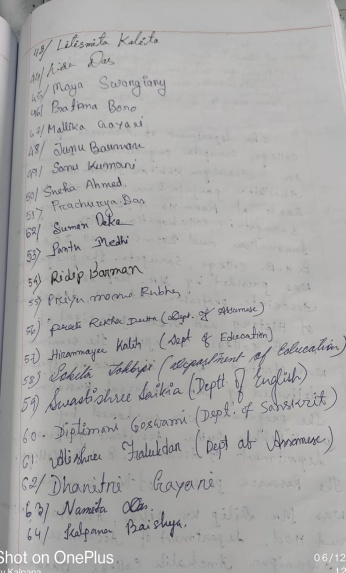 43/ Litismita Kalita
44/ Das
45/ Maya Swargiary
46/ Pratima Boro
47/ Mallika Gayari
48/ Junu Barman
49/ Sonu Kumari
50/ Sneha Ahmed.
51/ Prachurya Das
52/ Suman Deka
53/ Pantu Medhi
54/ Ridip Barman
55/ Priya
56) Rekha Dutta (Dept. of Assamese)
57) Hiranmayee Kalita (Dept of Education)
58) (Department of Education)
59) Swastishree Saikia (Deptt of English)
60. Diptimoni Goswami (Dept. of Sanskrit)
61. (Dept of Assamese)
62/ Dhanitri Gayari
63/ Namita Das.
64/ Kalpana Baishya.
Shot on OnePlus
By Kalpana
06/12